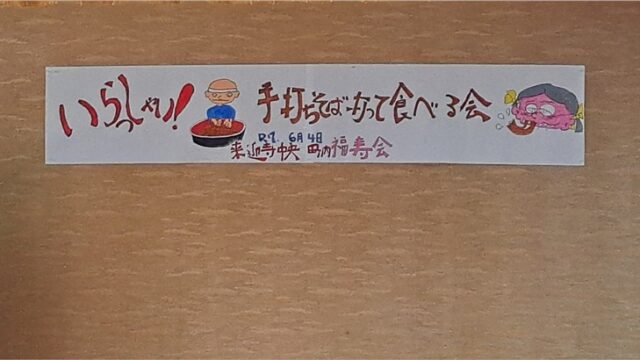 いらっしゃい! 手打ちそば切って食べる会
R7. 6月4日
来迎寺中央 町内福寿会